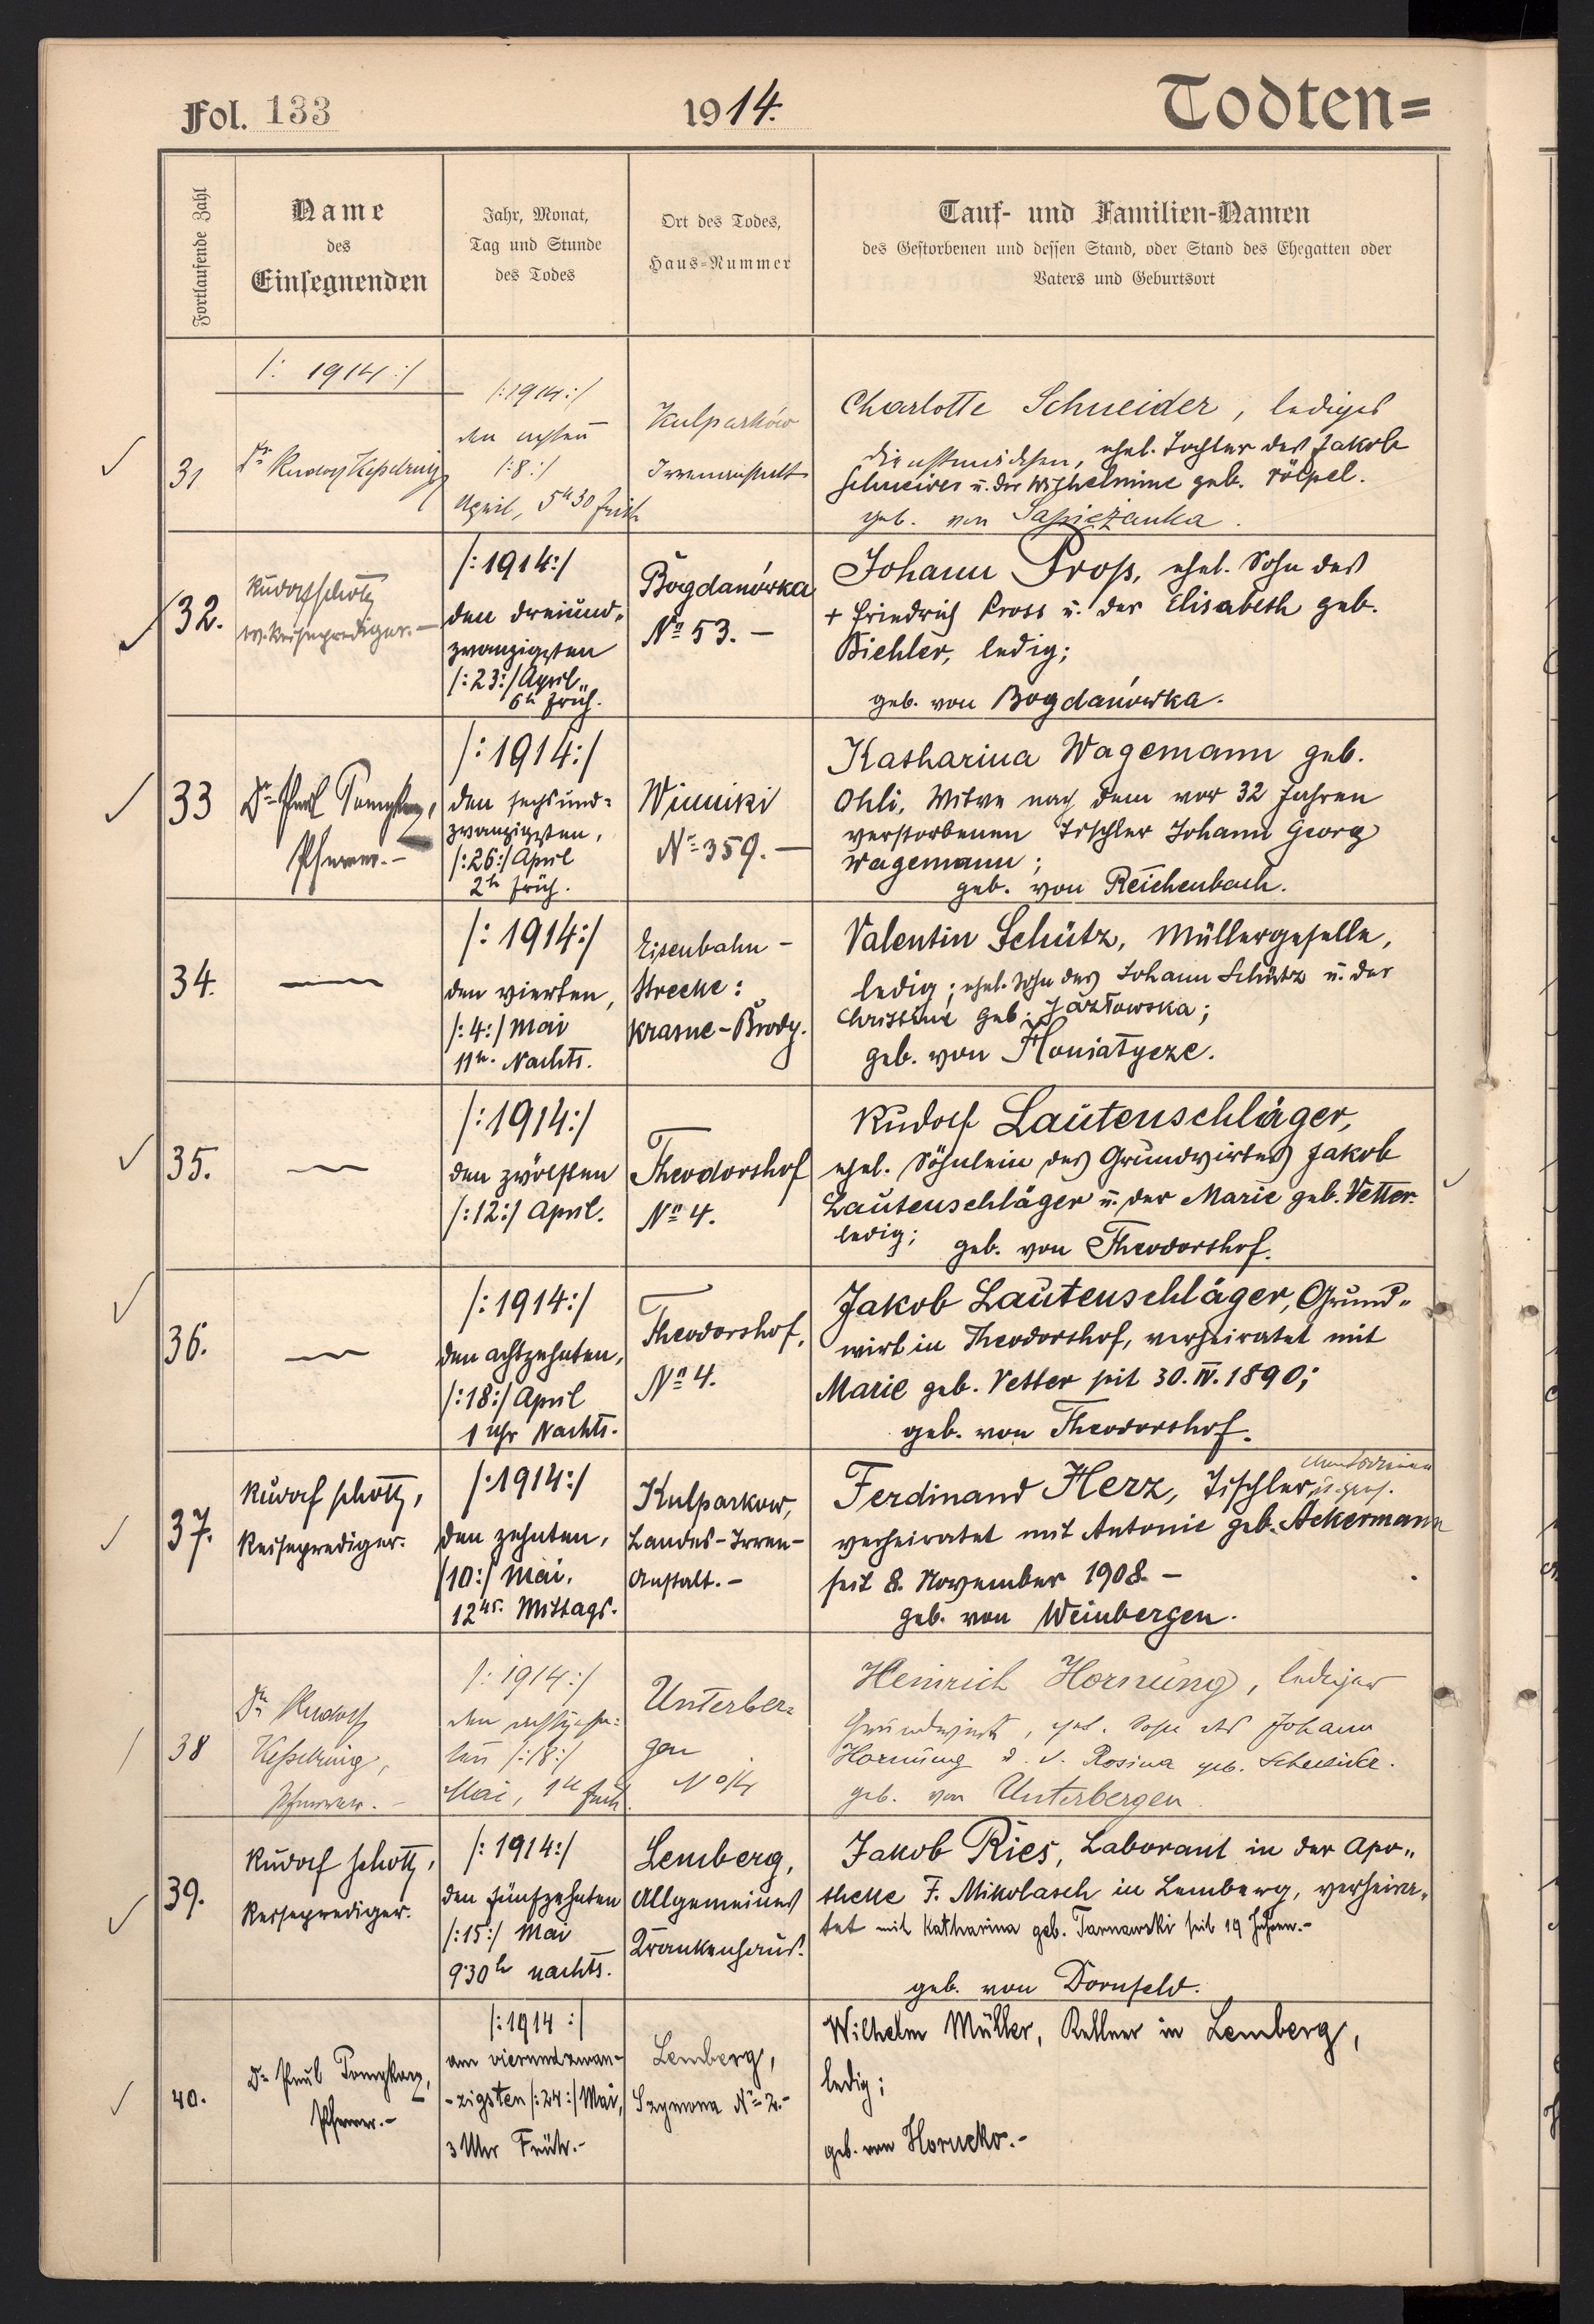 Fol. 133
1914.
Todten=
Fortlaufende Zahl
Name
des
Einsegnenden
Jahr, Monat,
Tag und Stunde
des Todes
Ort des Todes,
Haus=Nummer
Tauf- und Familien-Namen
des Gestorbenen und dessen Stand, oder Stand des Ehegatten oder
Vaters und Geburtsort
/: 1914 :/
31
Dr Rudolf Kesselring
/:1914:/
den achten
/:8:/
April, 5h30 früh
Kulparków
Irrenanstalt
Charlotte Schneider, lediges
Dienstmädchen, ehel. Tochter des Jakob
Schneider u. der Wilhelmine geb. Pöpel.
geb. von Sapieżanka.
32.
Rudolf Schotz
ev. Reiseprediger.-
/:1914:/
den dreiund„
zwanzigsten
/:23:/ April
6h früh.
Bogdanówka
No 53. -
Johann Pross, ehel. Sohn des
+ Friedrich Pross u. der Elisabeth geb.
Biehler, ledig;
geb. von Bogdanówka.
33
Dr Paul
Pfarrer.-
/:1914:/
den sechsund=
zwanzigsten,
/:26:/ April
2h früh.
Winniki
No 359. -
Katharina Wagemann geb.
Ohli, Witwe nach dem vor 32 Jahren
verstorbenen Tischler Johann Georg
Wagemann;
geb. von Reichenbach.
34.
—
/:1914:/
den vierten,
/:4:/ Mai
11h. Nachts.
Eisenbahn-
Strecke:
Krasne-Brody.
Valentin Schütz, Müllergeselle,
ledig; ehel. Sohn des Johann Schütz u. der
Christine geb. Jazłowska;
geb. von Honiatycze.
35.
—
/:1914:/
den zwölften
/:12:/ April.
Theodorshof
No 4.
Rudolf Lautenschläger,
ehel. Söhnlein des Grundwirtes Jakob
Lautenschläger u. der Marie geb. Vetter.
ledig; geb. von Theodorshof.
36.
—
/:1914:/
den achtzehnten,
/:18:/ April
1 Uhr Nachts.
Theodorshof,
No 4.
Jakob Lautenschläger, Grund„
wirt in Theodorshof, verheiratet mit
Marie geb. Vetter seit 30. IV. 1890;
geb. von Theodorshof.
37.
Rudolf Schotz,
Reiseprediger.
/:1914:/
den zehnten,
/10:/ Mai,
12 45. Mittags.
Kulparkow,
Landes-Irren-
Anstalt.-
Ferdinand Herz, Tischler,
verheiratet mit Antonie geb. Ackermann
seit 8. November 1908.-
geb. von Weinbergen.
38
Dr Rudolf
Kesselring,
Pfarrer.-
/:1914:/
den achtzehn=
ten /:18:/
Mai, 1h früh.
Unterber=
gen
Heinrich Hornung, lediger
Grundwirt, ehel. Sohn des Johann
Hornung u. d. Rosina geb.
geb. von Unterbergen
39.
Rudolf Schotz,
Reiseprediger.
/:1914:/
den fünfzehnten
/:15:/ Mai
9 30h nachts.
Lemberg,
Allgemeines
Krankenhaus.
Jakob Ries, Laborant in der Apo„
theke F. Mikolasch in Lemberg, verheira„
tet mit Katharina geb. Tarnawski seit 19 Jahren.-
geb. von Dornfeld.
40.
Dr Paul
Pfarrer.-
/:1914 :/
am vierundzwan-
-zigsten /:24:/ Mai,
3 Uhr Früh.-
Lemberg,
Szymona No 2.-
Wilhelm Müller, Kellner in Lemberg,
ledig;
geb. von Horucko.-